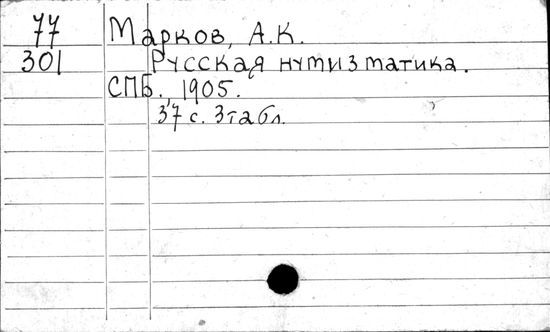 77 Марков, А.К.
301 Русская нумизматика.
СПБ., 1905.
37 с. 3 табл.